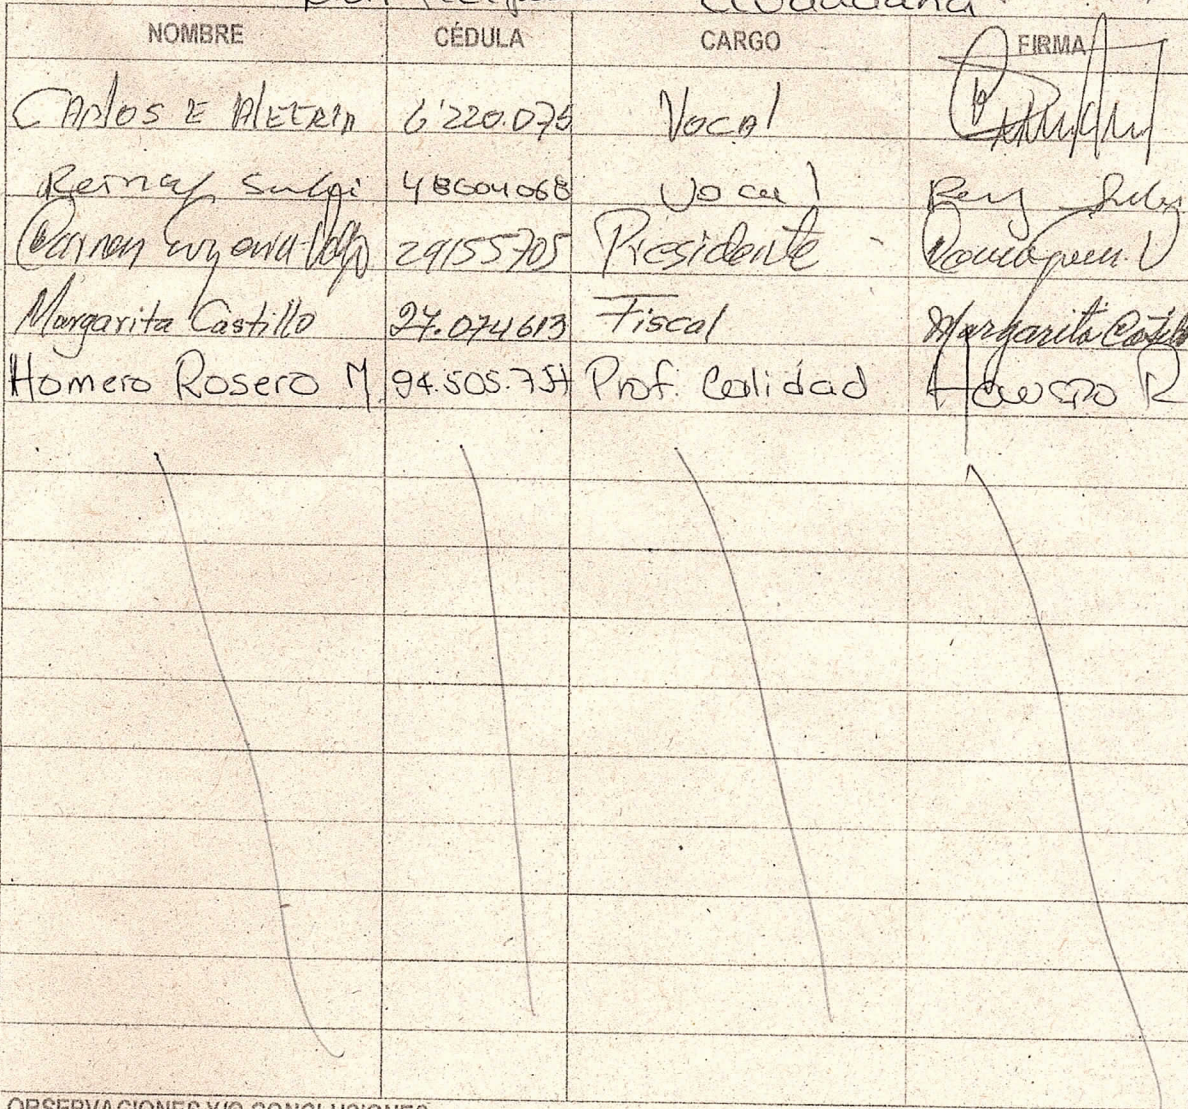 Ciudadana
NOMBRE CÉDULA CARGO FIRMA
CARLOS E 6'220.076 Vocal
48604068 Vocal
Carmen 29155705 Presidente
Margarita Castillo 27.074613 Fiscal Margarita Castillo
Homero Rosero M. 94.505.754 Prof. Calidad Homero R
OBSERVACIONES Y/O CONCLUSIONES